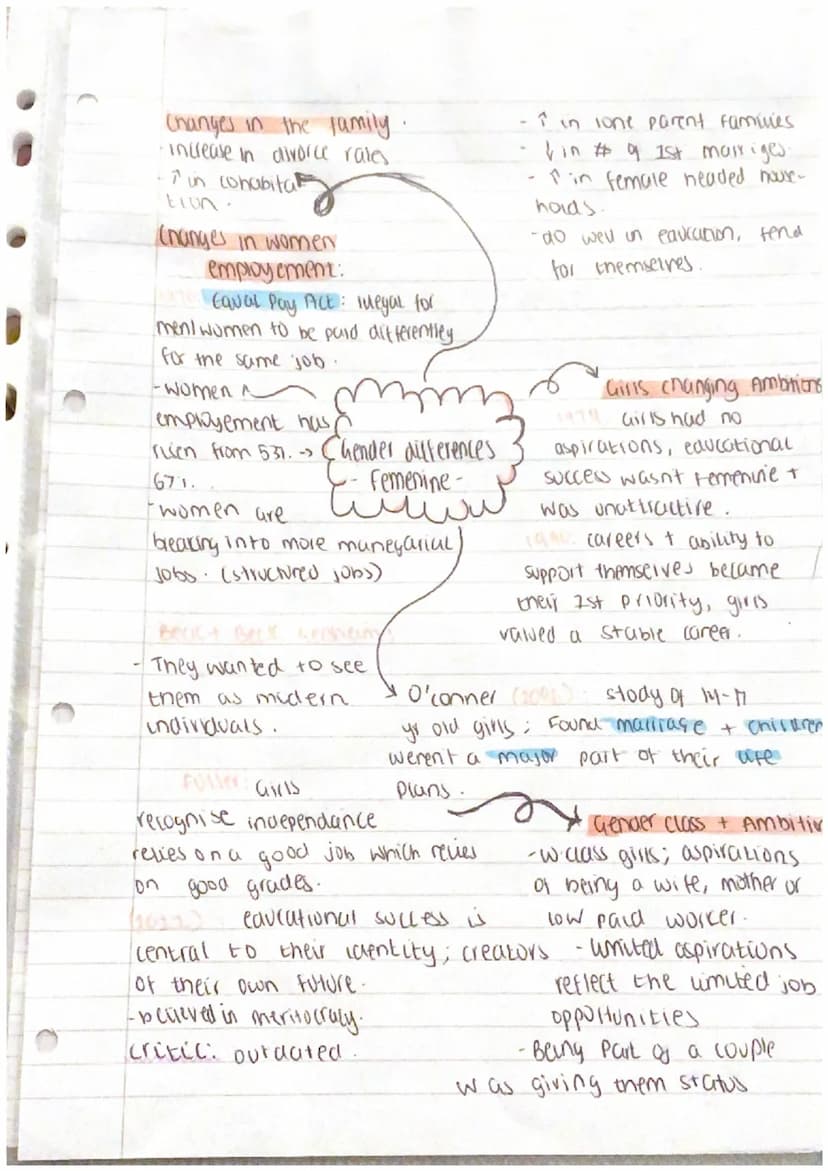 Changes in the family.
- increase in divorce rates
- ↑ in cohabita
tion.
- ↑ in lone parent families
- ↓ in # of 1st marriges
- ↑ in female headed house-
holds.
- do well in education, fend
for themselves.
Changes in women
employement:
Equal Pay Act: illegal for
men/women to be paid differentley
for the same job.
- women
employement has
risen from 53% →
67%.
- women are
breaking into more manegarial
jobs. (structured jobs)
Gender differences
- Femenine -
Girls Changing Ambitions
Girls had no
aspirations, educational
success wasnt femenine +
was unattractive.
careers + ability to
support themselves became
their 1st priority, girls
valued a stable career.
Beck + Beck Gernsheim
- They wanted to see
them as modern
individuals.
O'conner : study of 14-17
yr old girls; Found marriage + children
werent a major part of their life
plans.
Fuller: Girls
recognise independance
relies on a good job which relies
on good grades.
educational success is
central to their identity; creators
of their own future.
- believed in meritocracy.
critic: outdated.
Gender class + Ambitio
- w.class girls; aspirations
of being a wife, mother or
low paid worker.
- limited aspirations
reflect the limited job
opportunities
- Being part of a couple
was giving them status